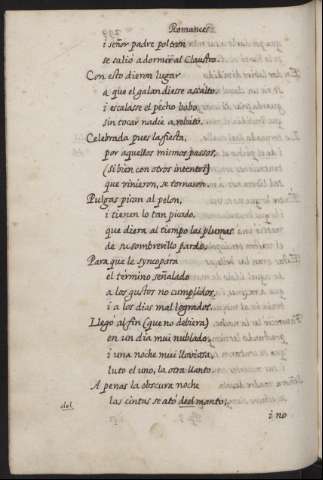 Romances
i señor padre poltron
se salió a dormir al Claustro.
Con esto dieron lugar
a que el galan diesse assalto
i escalasse el pecho bobo,
sin tocar nadie a rebato.
Celebrada pues la fiesta,
por aquellos mismos passos,
(si bien con otros intentos)
que vinieron, se tornaron.
Pulgas pican al pelon,
i tienen lo tan picado,
que diera al tiempo las plumas
de su sombrerillo pardo.
Para que le syncopára
el termino señalado
a los gustos no cumplidos,
i a los dias mal logrados.
Llegó al fin (que no deviera)
en un dia mui nublado,
i una noche mui lluviosa,
luto el uno, la otra llanto.
A penas la obscura noche
las cintas se ató deel manto,
del
i no